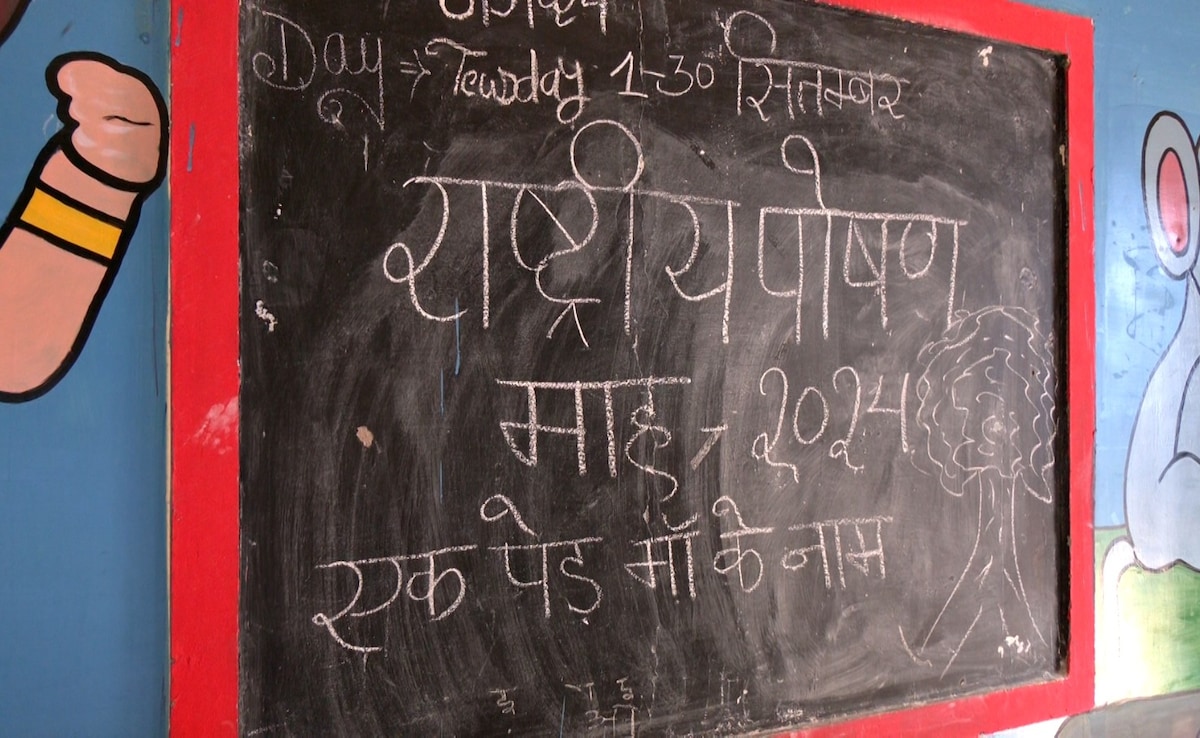 Day ⇒ Tewsday 1-30 सितम्बर
राष्ट्रीय पोषण
माह - २०२४
एक पेड़ माँ के नाम